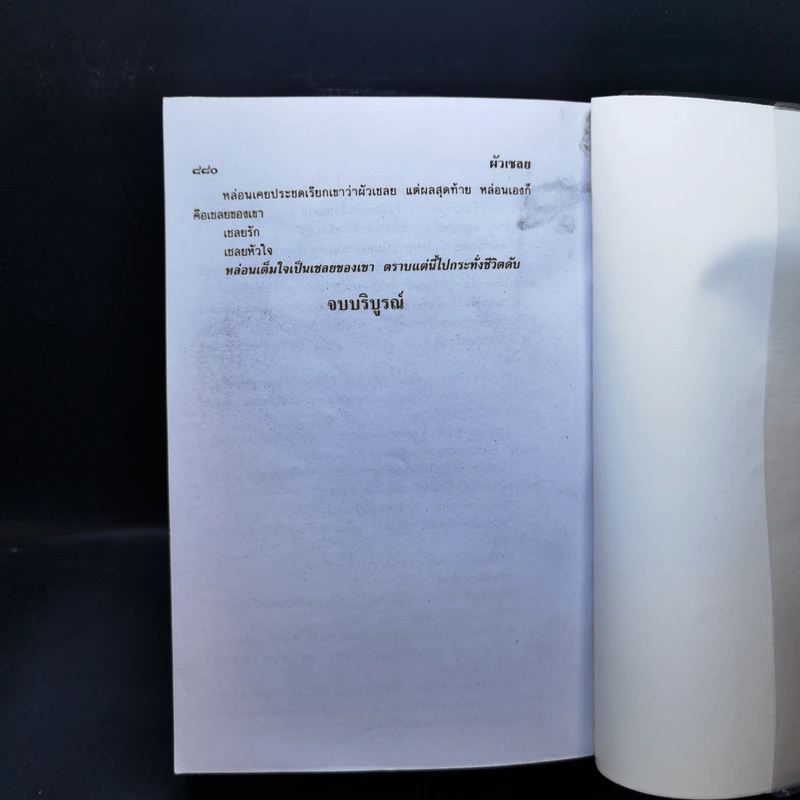 ๘๘๐ ผัวเชลย
หล่อนเคยประชดเรียกเขาว่าผัวเชลย แต่ผลสุดท้าย หล่อนเองก็
คือเชลยของเขา
เชลยรัก
เชลยหัวใจ
หล่อนเต็มใจเป็นเชลยของเขา ตราบแต่นี้ไปกระทั่งชีวิตดับ
จบบริบูรณ์